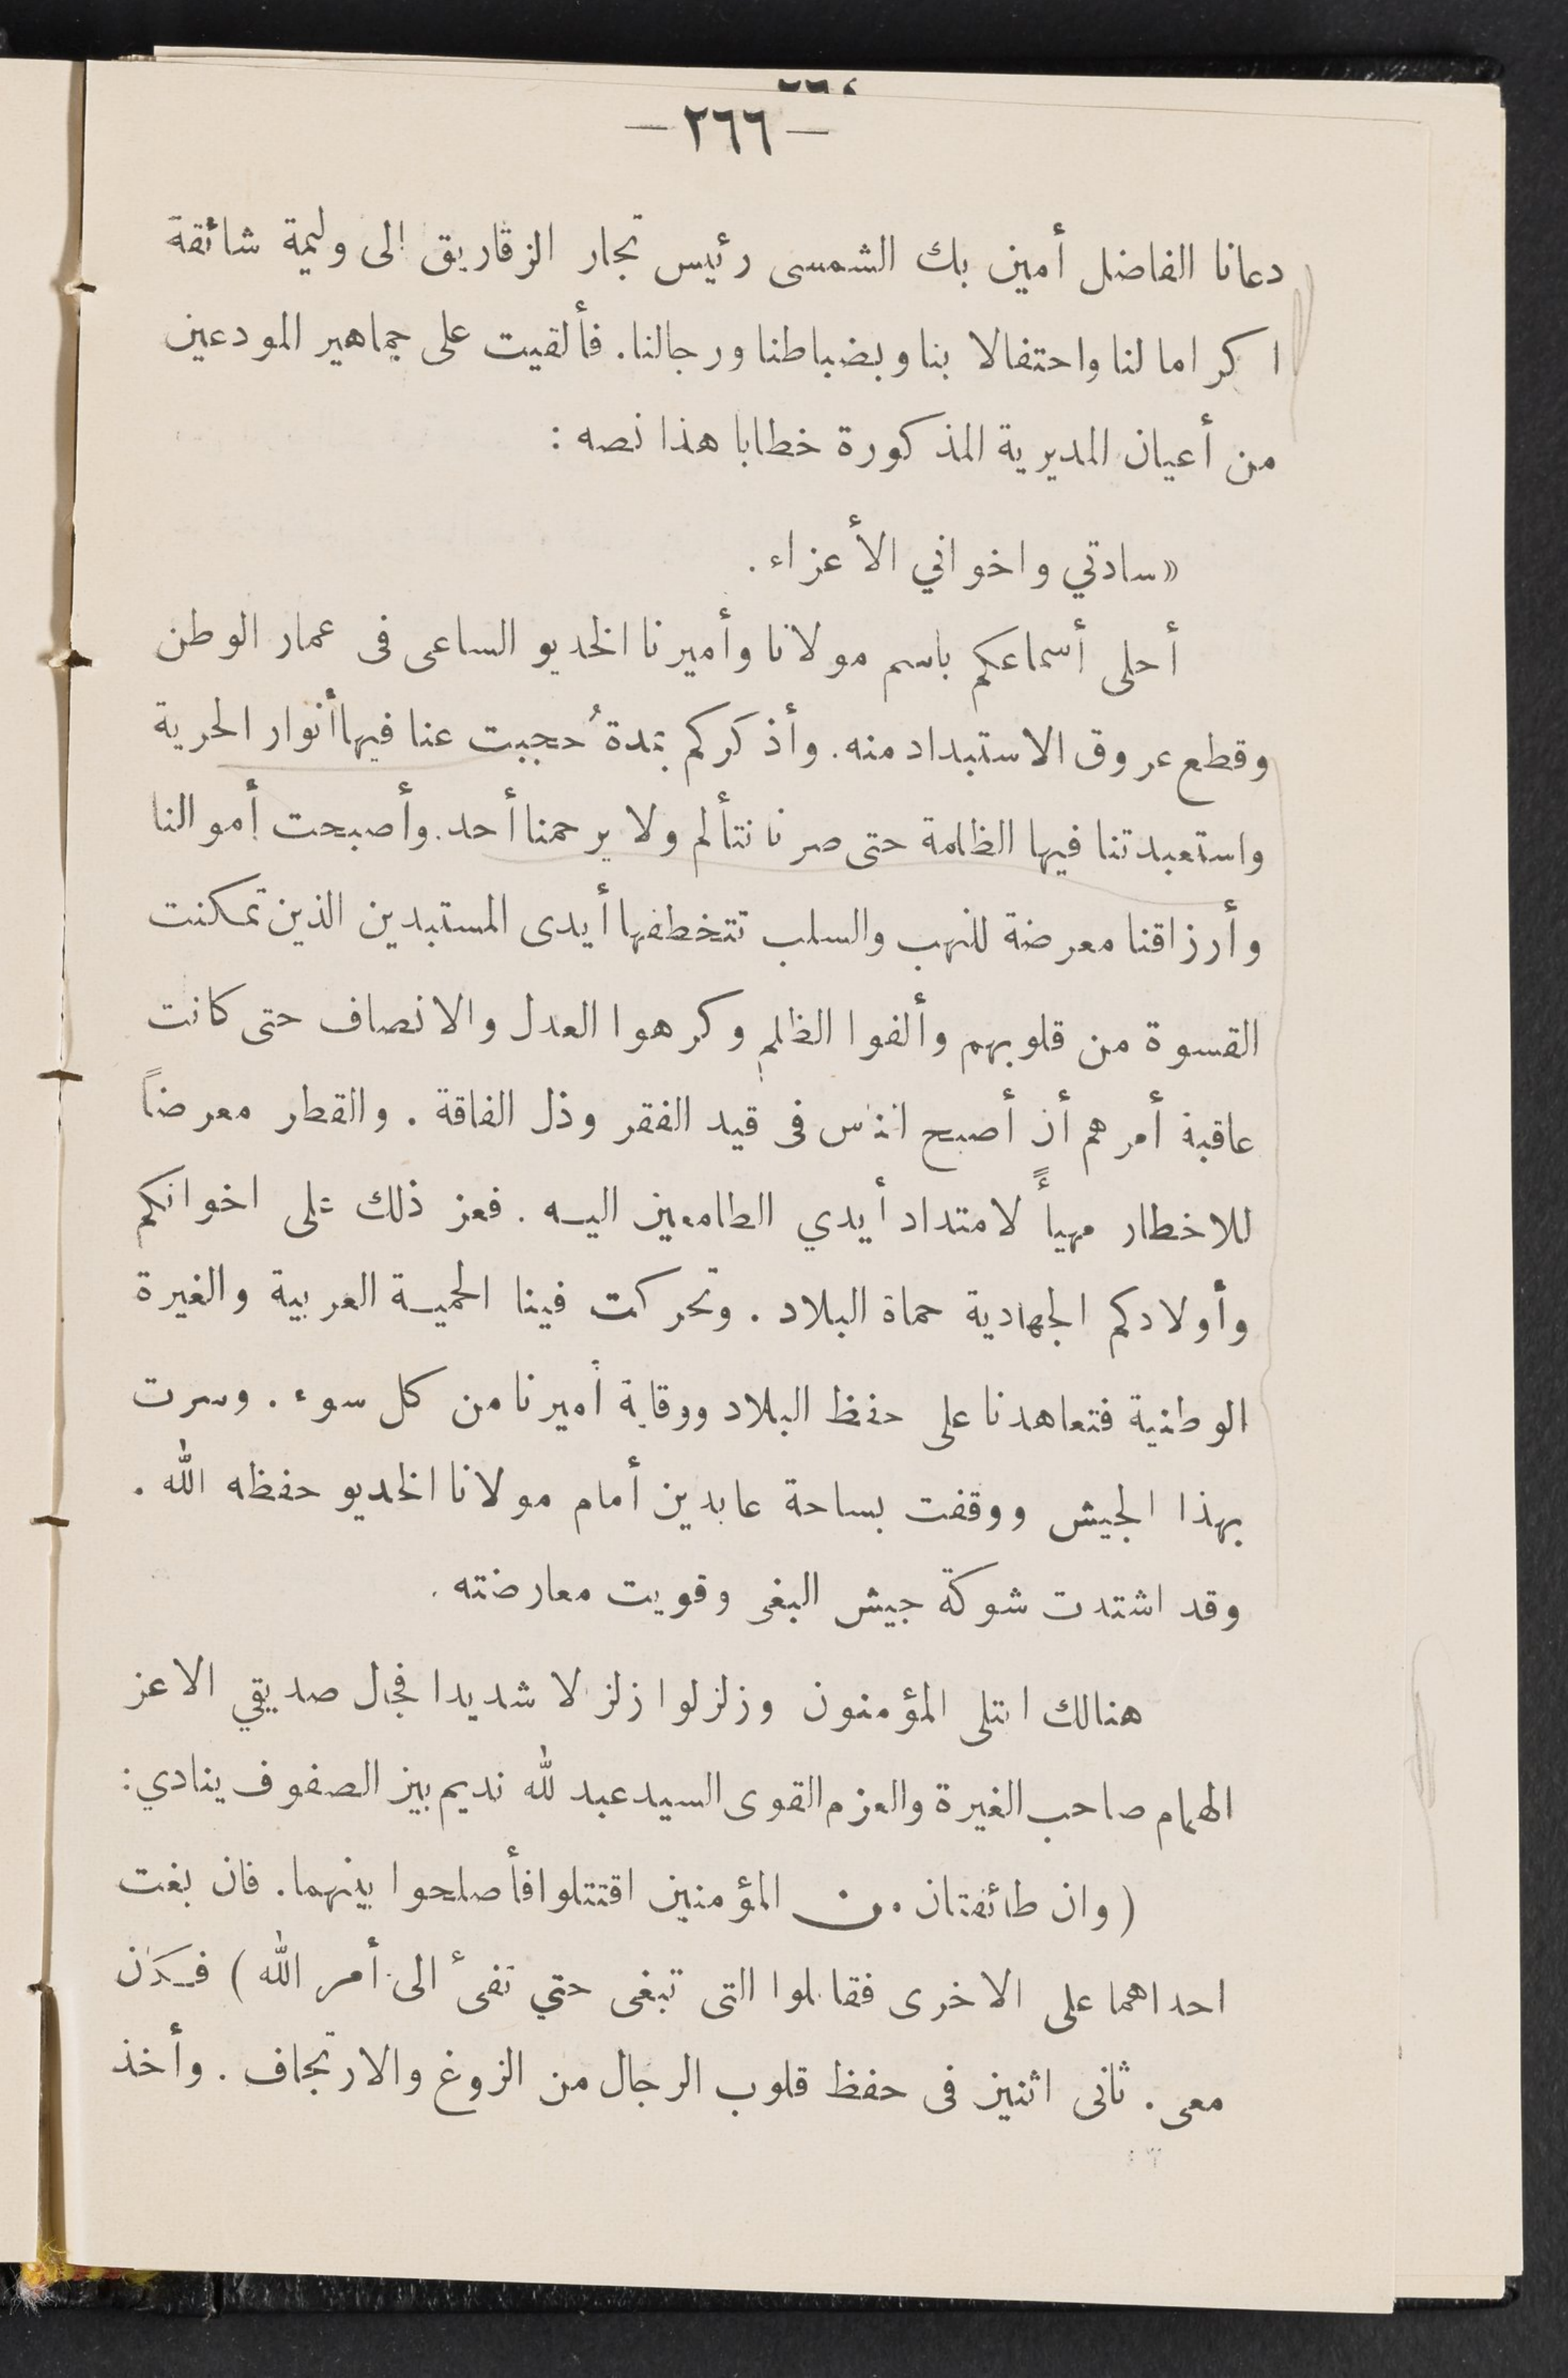 — ٢٦٦ —
دعانا الفاضل أمين بك الشمسى رئيس تجار الزقازيق الى وليمة شائقة
اكراما لنا واحتفالا بنا وبضباطنا ورجالنا. فألقيت على جماهير المودعين
من أعيان المديرية المذكورة خطابا هذا نصه :
« سادتي واخواني الأعزاء .
أحلى أسماعكم باسم مولانا وأميرنا الخديو الساعى فى عمار الوطن
وقطع عروق الاستبداد منه. وأذكركم بمدة حُجبت عنا فيها أنوار الحرية
واستعبدتنا فيها الظلمة حتى صرنا نتألم ولا يرحمنا أحد. وأصبحت أموالنا
وأرزاقنا معرضة للنهب والسلب تتخطفها أيدى المستبدين الذين تمكنت
القسوة من قلوبهم وألفوا الظلم وكرهوا العدل والانصاف حتى كانت
عاقبة أمرهم أن أصبح الناس فى قيد الفقر وذل الفاقة . والقطر معرضاً
للاخطار مهيأً لامتداد أيدي الطامعين اليه . فعز ذلك على اخوانكم
وأولادكم الجهادية حماة البلاد . وتحركت فينا الحمية العربية والغيرة
الوطنية فتعاهدنا على حفظ البلاد ووقاية أميرنا من كل سوء . وسرت
بهذا الجيش ووقفت بساحة عابدين أمام مولانا الخديو حفظه الله .
وقد اشتدت شوكة جيش البغى وقويت معارضته .
هنالك ابتلى المؤمنون وزلزلوا زلزلا شديدا فجال صديقي الاعز
الهمام صاحب الغيرة والعزم القوى السيد عبد لله نديم بين الصفوف ينادي :
( وان طائفتان من المؤمنين اقتتلوا فأصلحوا بينهما. فان بغت
احداهما على الاخرى فقاتلوا التى تبغى حتي تفىء الى أمر الله ) فكان
معى . ثانى اثنين فى حفظ قلوب الرجال من الزوغ والارتجاف . وأخذ